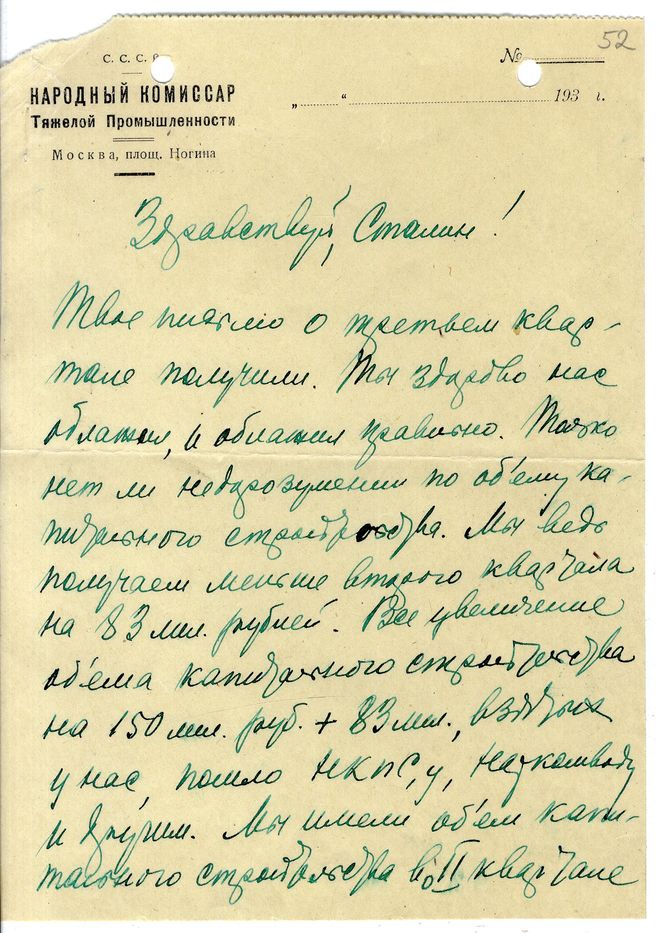 52
С. С. С. Р.
№
НАРОДНЫЙ КОМИССАР
Тяжелой Промышленности
„ “ 193 г.
Москва, площ. Ногина
Здравствуй, Сталин!
Твое письмо о третьем квар-
тале получили. Ты здорово нас
обложил, и обложил правильно. Только
нет ли недоразумении по об'ему ка-
питального строительства. Мы ведь
получаем меньше второго квартала
на 83 мил. рублей. Все увеличение
об'ема капитального строительства
на 150 мил. руб. + 83 мил., взятых
у нас, пошло НКПС,у, Наркомводу
и другим. Мы имели об'ем капи-
тального строительства во II квартале